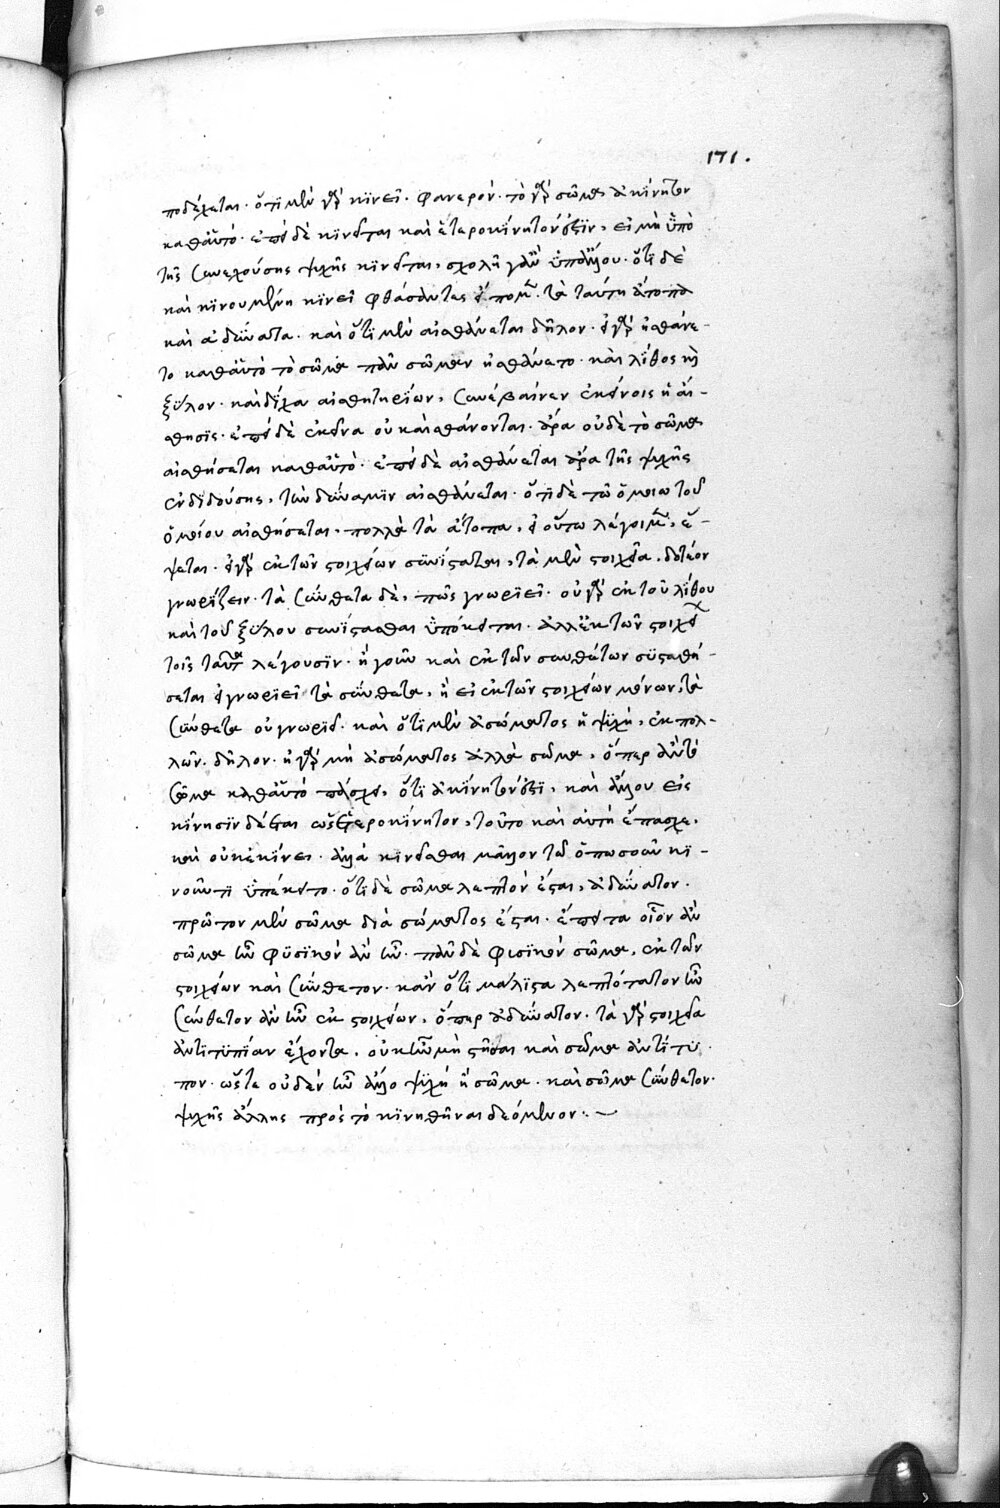 171.
ποδέχεται· ὅτι μὲν γὰρ κινεῖ· φανερόν· τὸ γὰρ σῶμα ἀκίνητον
καθαὑτό· ἐπεὶ δὲ κινεῖται καὶ ἑτεροκίνητόν ἐστιν, εἰ μὴ ὑπὸ
τῆς συνεχούσης ψυχῆς κινεῖται, σχολῆ γ' ἂν ὑπ' ἄλλου· ὅτι δὲ
καὶ κινουμένη κινεῖ φθάσαντες εἴπομεν· τὰ ταύτη ἄτοπα
καὶ ἀδύνατα· καὶ ὅτι μὲν αἰσθάνεται δῆλον· εἰ γὰρ ἠσθάνε-
το καθαὑτὸ τὸ σῶμα πᾶν σῶμα ἂν ἠσθάνετο· καὶ λίθος καὶ
ξύλον· καὶ δίχα αἰσθητηρίων, συνέβαινεν ἐκείνοις ἡ αἴ-
σθησις· ἐπεὶ δὲ ἐκεῖνα οὐκ αἰσθάνονται· ἄρα οὐδὲ τὸ σῶμα
αἰσθήσεται καθαὑτό· ἐπεὶ δὲ αἰσθάνεται ἄρα τῆς ψυχῆς
ἐνδιδούσης, τὴν δύναμιν αἰσθάνεται· ὅτι δὲ τῶ ὁμοίω τοῦ
ὁμοίου αἰσθήσεται, πολλὰ τὰ ἄτοπα, εἰ οὕτω λέγοιμεν, ἕ-
ψεται· εἰ γὰρ ἐκ τῶν στοιχείων συνίσταται, τὰ μὲν στοιχεῖα, δοτέον
γνωρίζειν· τὰ σύνθετα δὲ, πῶς γνωριεῖ· οὐ γὰρ ἐκ τοῦ λίθου
καὶ τοῦ ξύλου συνίστασθαι ὑπόκειται· ἀλλ' ἐκ τῶν στοιχείων
τοῖς ταῦτα λέγουσιν· ἢ γοῦν καὶ ἐκ τῶν συνθέτων συσταθή-
σεται εἰ γνωριεῖ τὰ σύνθετα, ἢ εἰ ἐκ τῶν στοιχείων μόνων, τὰ
σύνθετα οὐ γνωριεῖ· καὶ ὅτι μὲν ἀσώματος ἡ ψυχὴ, ἐκ πολ-
λῶν· δῆλον· εἰ γὰρ μὴ ἀσώματος ἀλλὰ σῶμα, ὅπερ ἂν τὸ
σῶμα καθαὑτὸ πάσχει, ὅτι ἀκίνητόν ἐστι, καὶ ἄλλου εἰς
κίνησιν δεῖται ὡς ἑτεροκίνητον, τοῦτο καὶ αὐτὴ ἔπασχε,
καὶ οὐκ ἐκίνει· ἀλλὰ κινεῖσθαι μᾶλλον τῶ ὁπωσοῦν κι-
νοῦντι ὑπέκειτο· ὅτι δὲ σῶμα λεπτὸν ἔσται, ἀδύνατον·
πρῶτον μὲν σῶμα διὰ σώματος ἔσται· ἔπειτα οἷον ἂν
σῶμα ἦν φυσικὸν ἂν ἦν· πᾶν δὲ φυσικὸν σῶμα, ἐκ τῶν
στοιχείων καὶ σύνθετον· κἂν ὅτι μάλιστα λεπτότατον ἦν
σύνθετον ἂν ἦν ἐκ στοιχείων, ὅπερ ἀδύνατον· τὰ γὰρ στοιχεῖα
ἀντιτυπίαν ἔχοντα, οὐκ ἦν μὴ στῆσαι καὶ σῶμα ἀντίτυ-
πον· ὥστε οὐδὲν ἦν ἄλλο ψυχὴ ἢ σῶμα· καὶ σῶμα σύνθετον·
ψυχῆς ἄλλης πρὸς τὸ κινηθῆναι δεόμενον·